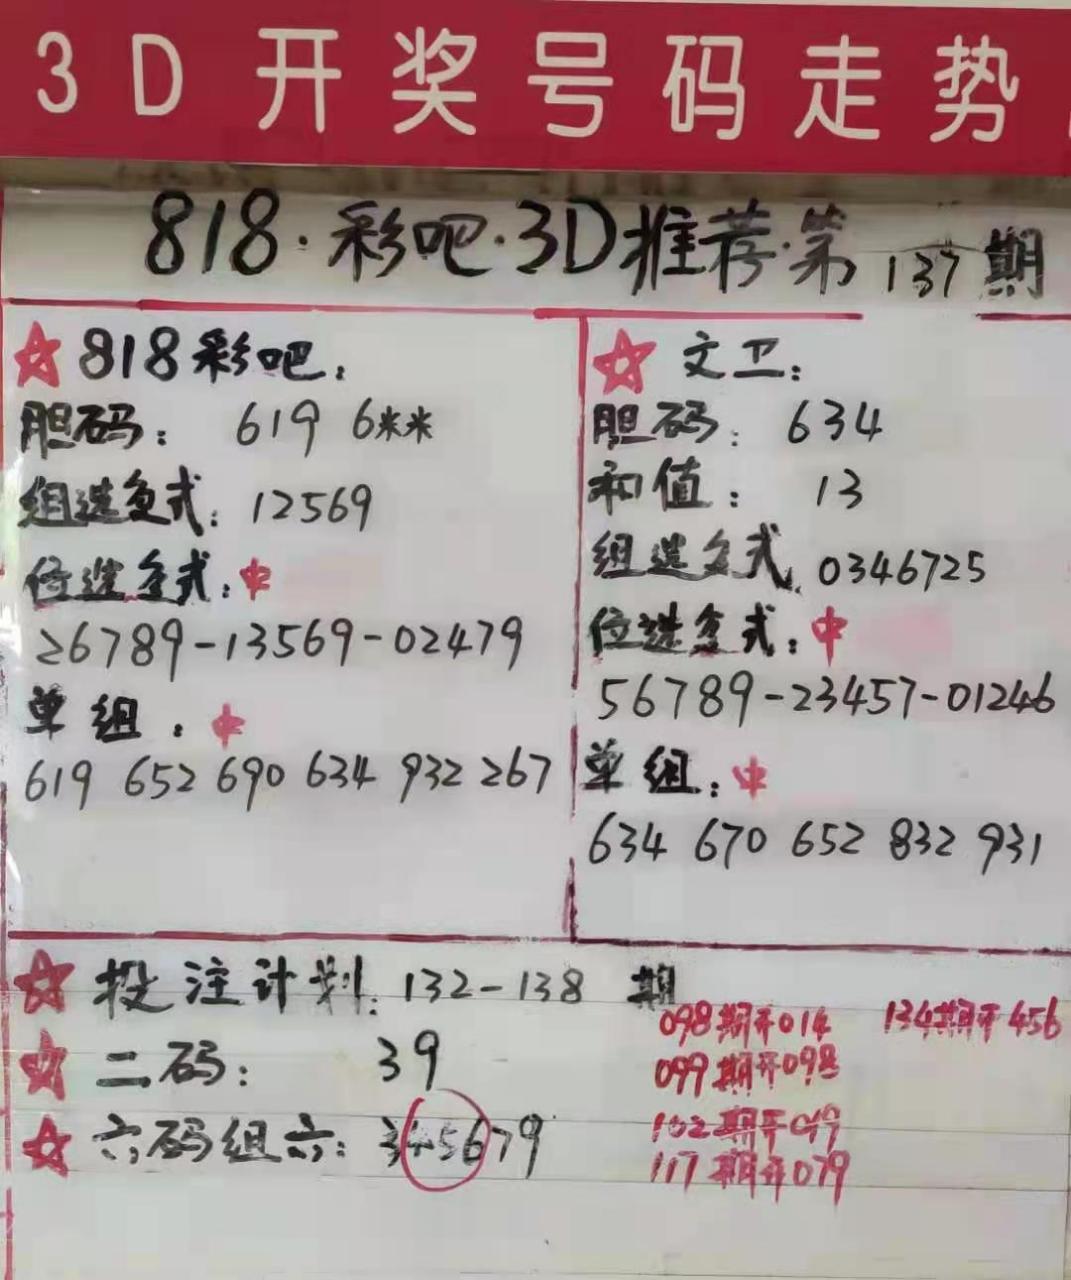 3D开奖号码走势
818·彩吧·3D推荐·第137期
☆818彩吧:
胆码: 619 6**
组选复式: 12569
位选复式:中
26789-13569-02479
单组:中
619 652 690 634 932 267
☆文卫:
胆码: 634
和值: 13
组选复式 0346725
位选复式:中
56789-23457-01246
单组:中
634 670 652 832 931
☆投注计划: 132-138 期
☆二码: 39
☆六码组六: 345679
098期开014 134期开456
099期开098
102期开
117期开079